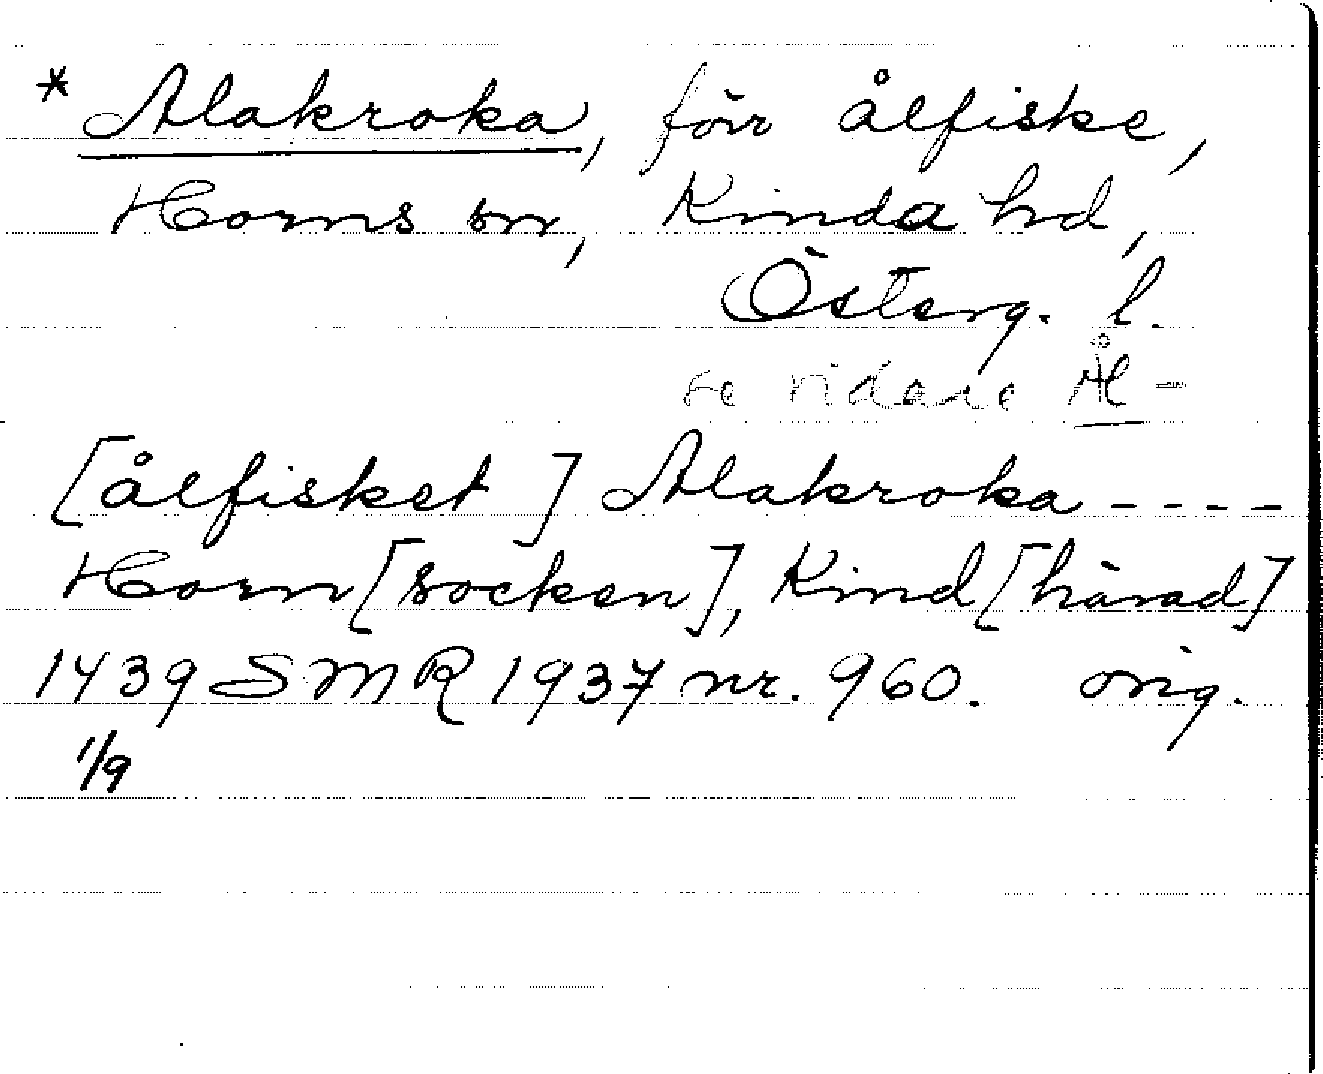 * Alakroka, förr ålfiske,
Horns sn, Kinda hd,
Österg. l.
se vidare Ål-
[ålfisket] Alakroka ----
Horn [socken], Kind [härad]
1439 SMR 1937 nr. 960. orig.
1/9